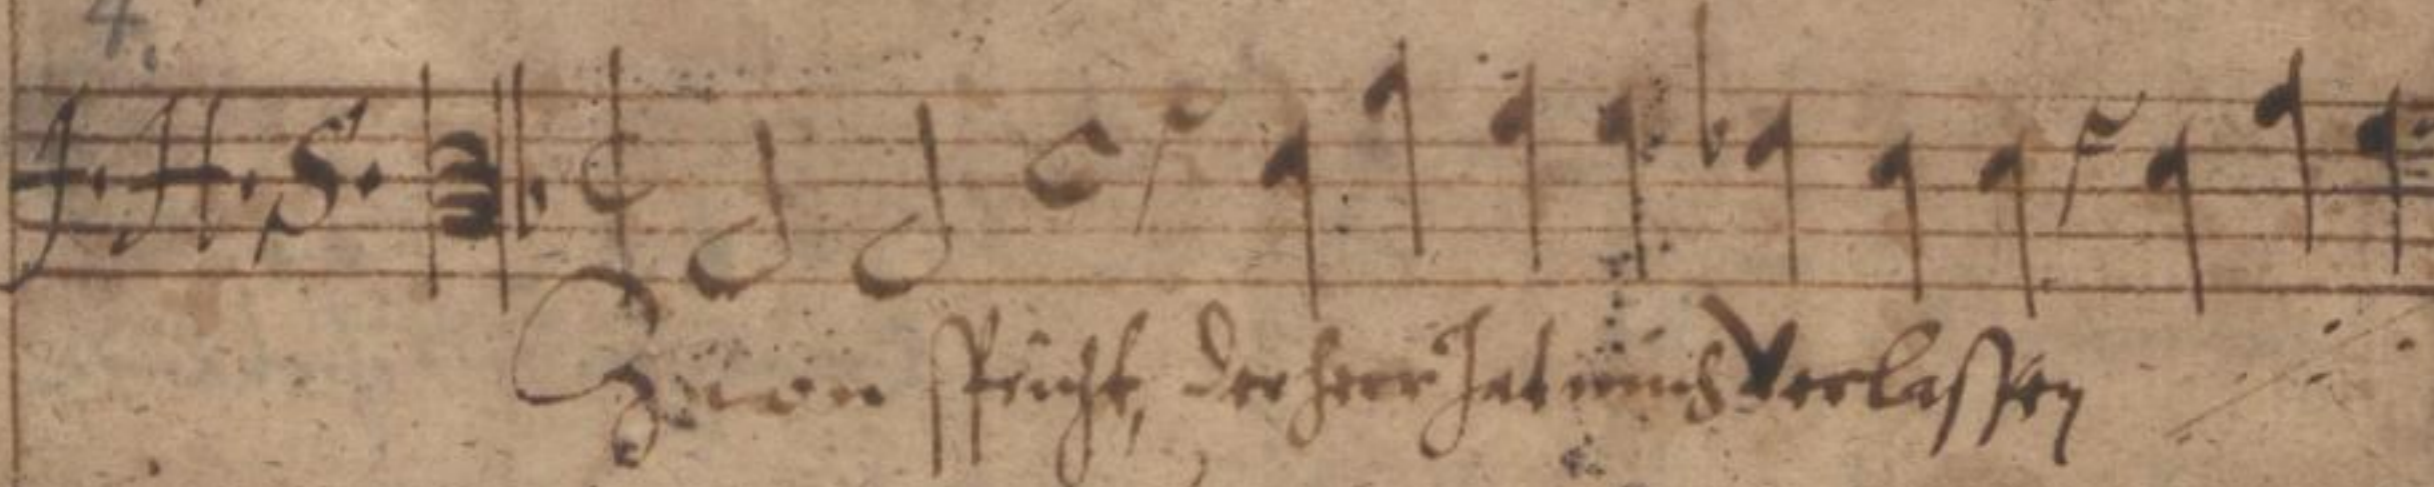 4.
J. H. S.
Zion spricht, der herr hat mich Verlassen